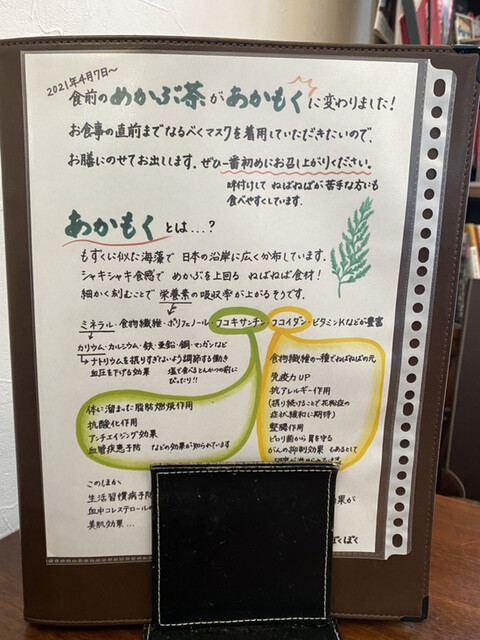 2021年4月7日〜
食前のめかぶ茶があかもくに変わりました!
お食事の直前までなるべくマスクを着用していただきたいので、
お膳にのせてお出しします。ぜひ一番初めにお召し上がりください。
味付けして ねばねばが苦手な方にも
食べやすくしています。
あかもくとは...?
もずくに似た海藻で 日本の沿岸に広く分布しています。
シャキシャキ食感で めかぶを上回る ねばねば食材!
細かく刻むことで 栄養素の吸収率が上がるそうです。
ミネラル・食物繊維・ポリフェノール・フコキサンチン・フコイダン・ビタミンKなどが豊富
カリウム・カルシウム・鉄・亜鉛・銅・マンガンなど
ナトリウムを摂りすぎないよう調節する働き
血圧を下げる効果 塩で食べるとんかつの前に
ぴったり!!
体に溜まった脂肪燃焼作用
抗酸化作用
アンチエイジング効果
血管疾患予防 などの効果が知られています
食物繊維の一種でねばねばの元
免疫力UP
抗アレルギー作用
(摂り続けることで花粉症の
症状緩和に期待)
整腸作用
ピロリ菌から胃を守る
がんの抑制効果もあるとして
このほか
生活習慣病予防
血中コレステロールの
美肌効果...
効果が
ぼくぼく